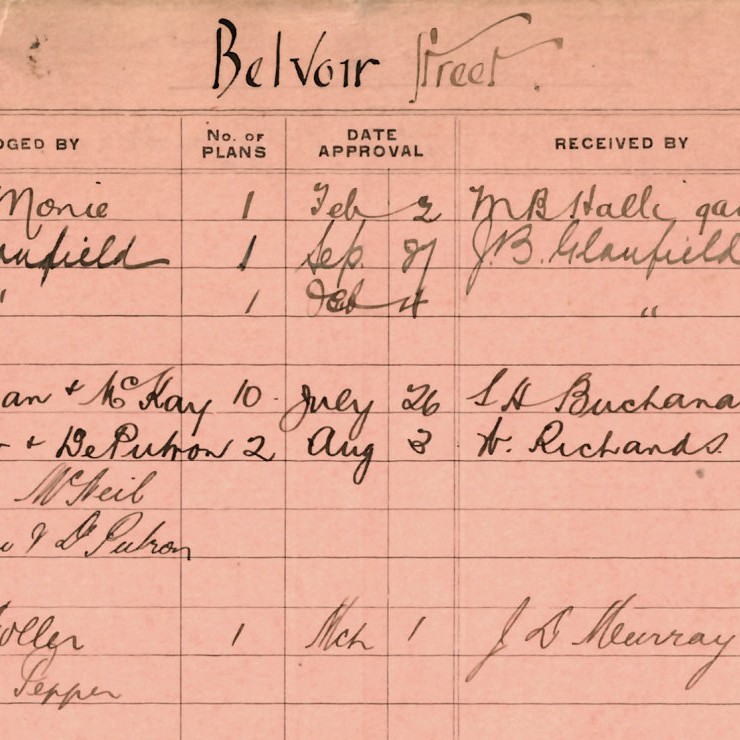 Belvoir Street.
DGED BY No. OF PLANS DATE APPROVAL RECEIVED BY
Monie 1 Feb 2 M B Halli
anfield 1 Sep. J. B. Glanfield
" 1 Feb 4 "
an & McKay 10 July 26 S H Buchana
& De Putron 2 Aug 3 W. Richards.
McNeil
& De Putron
1 Mch 1 J D Murray
Pepper